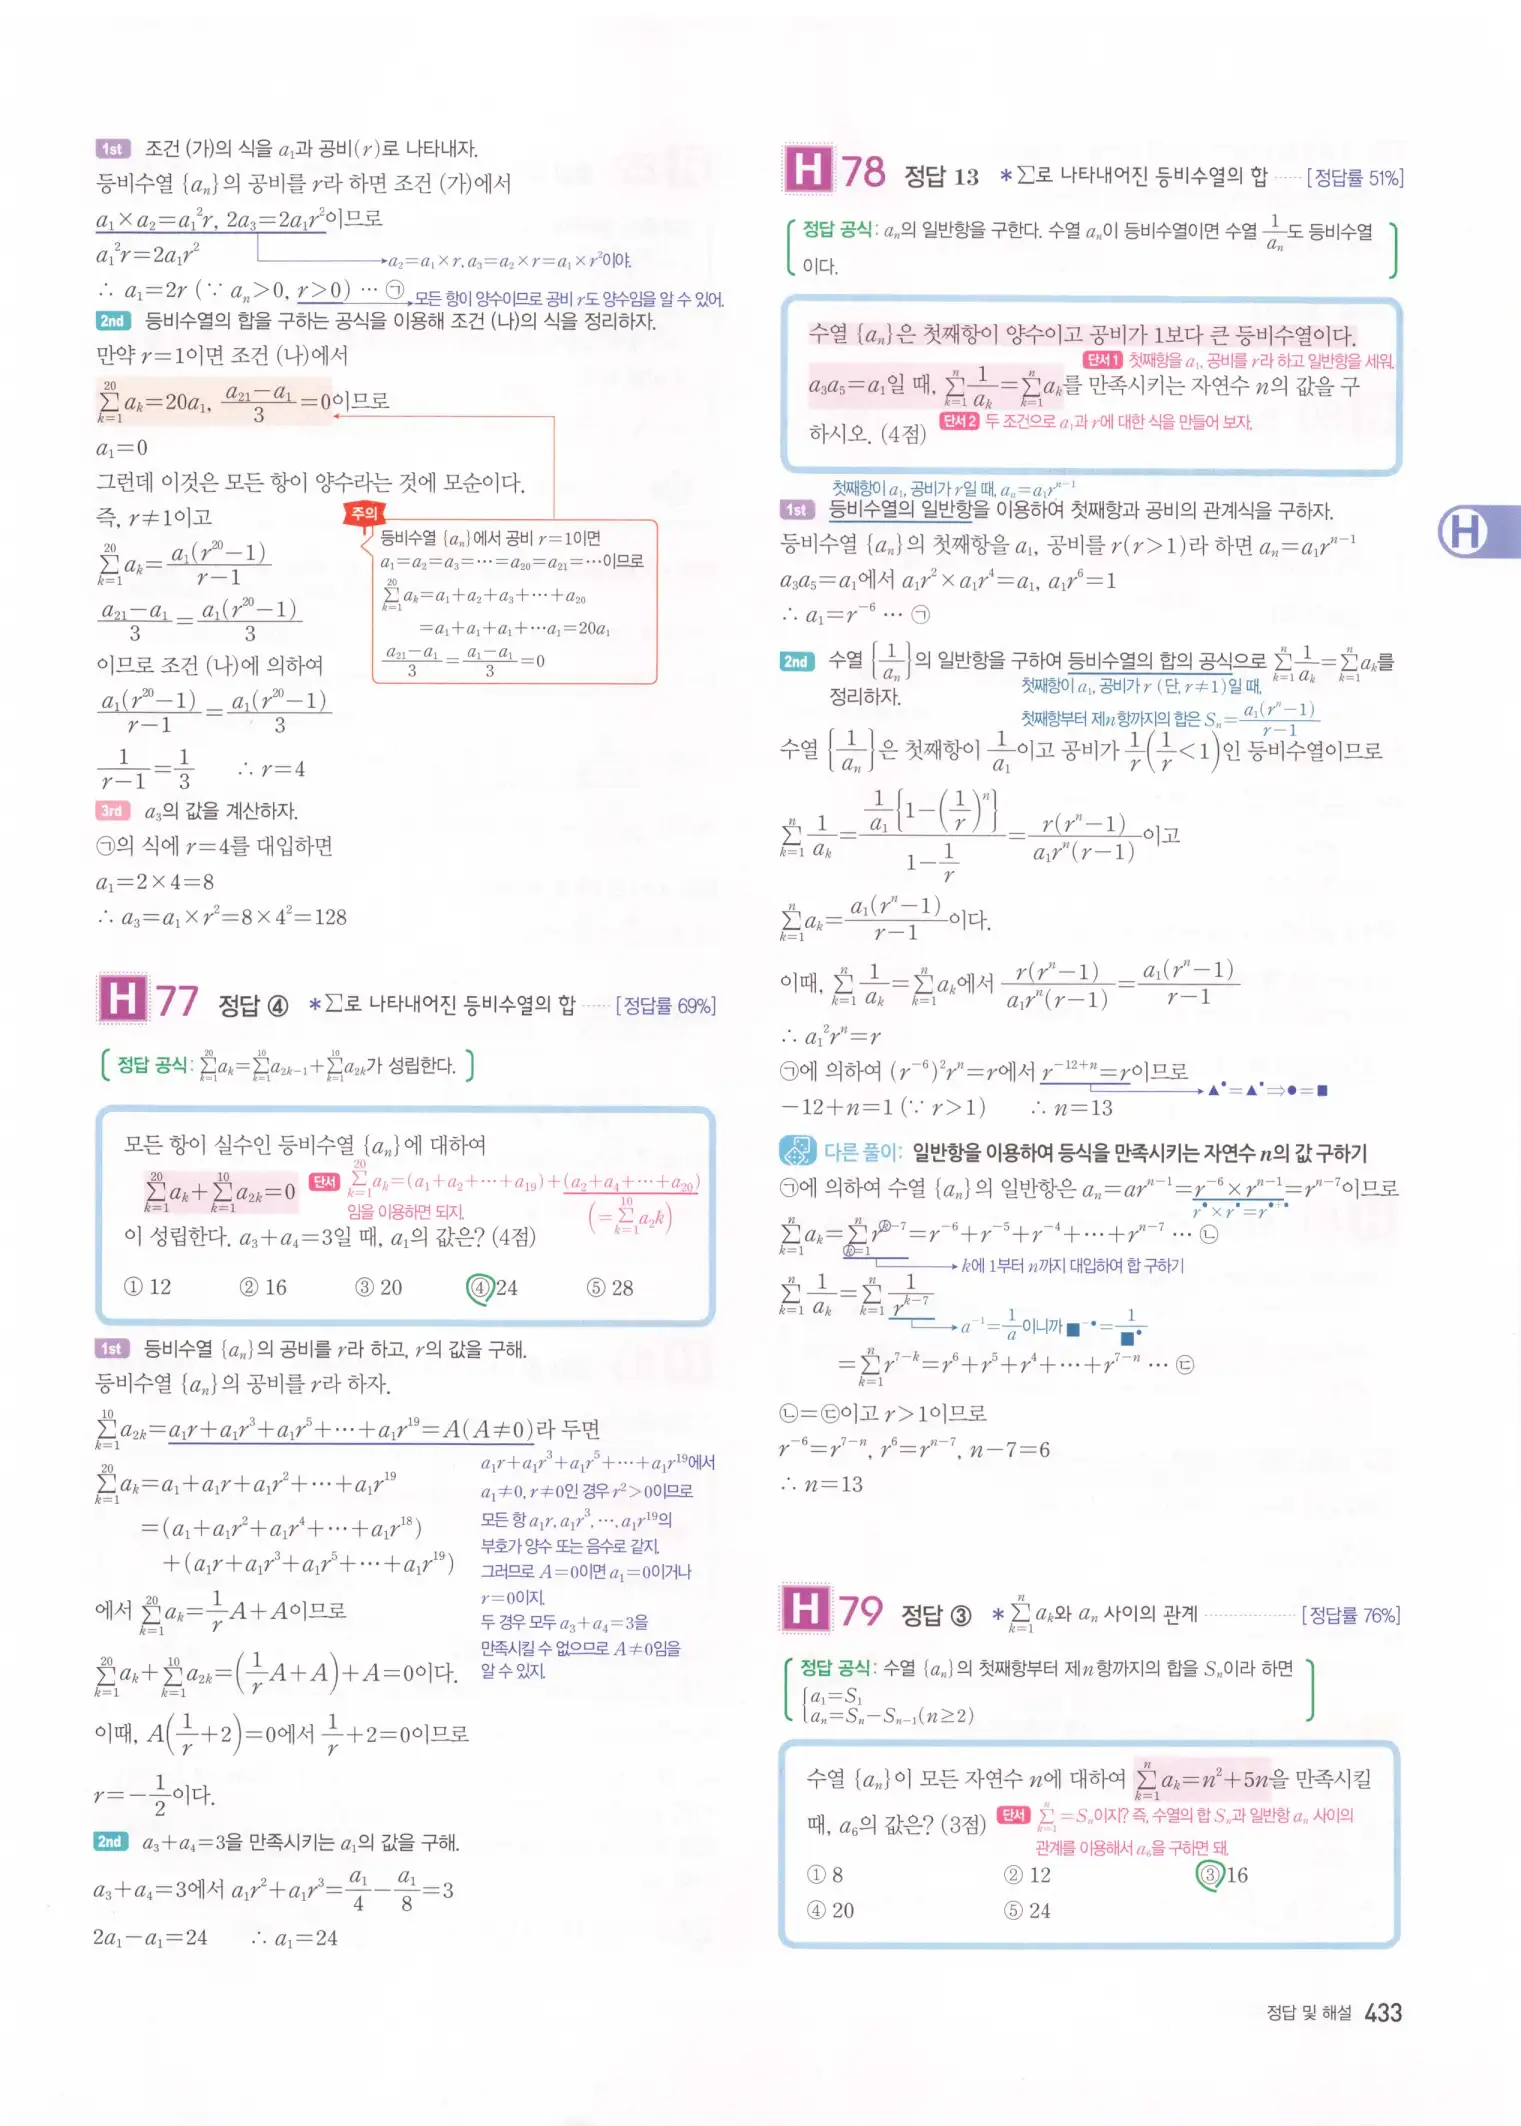 1st 조건 (가)의 식을 a₁과 공비(r)로 나타내자.
등비수열 {aₙ}의 공비를 r라 하면 조건 (가)에서
a₁×a₂=a₁²r, 2a₃=2a₁r²이므로
a₁²r=2a₁r²
a₂=a₁×r, a₃=a₂×r=a₁×r²이야.
∴ a₁=2r (∵ aₙ>0, r>0) … ㉠
모든 항이 양수이므로 공비 r도 양수임을 알 수 있어.
2nd 등비수열의 합을 구하는 공식을 이용해 조건 (나)의 식을 정리하자.
만약 r=1이면 조건 (나)에서
∑_{k=1}^{20} aₖ=20a₁, (a₂₁−a₁)/3=0이므로
a₁=0
그런데 이것은 모든 항이 양수라는 것에 모순이다.
즉, r≠1이고
∑_{k=1}^{20} aₖ=a₁(r²⁰−1)/(r−1)
(a₂₁−a₁)/3=a₁(r²⁰−1)/3
이므로 조건 (나)에 의하여
a₁(r²⁰−1)/(r−1)=a₁(r²⁰−1)/3
1/(r−1)=1/3 ∴ r=4
주의
등비수열 {aₙ}에서 공비 r=1이면
a₁=a₂=a₃=⋯=a₂₀=a₂₁=⋯이므로
∑_{k=1}^{20} aₖ=a₁+a₂+a₃+⋯+a₂₀
=a₁+a₁+a₁+⋯a₁=20a₁
(a₂₁−a₁)/3=(a₁−a₁)/3=0
3rd a₃의 값을 계산하자.
㉠의 식에 r=4를 대입하면
a₁=2×4=8
∴ a₃=a₁×r²=8×4²=128
H 77 정답 ④ *∑로 나타내어진 등비수열의 합 ····· [정답률 69%]
정답 공식: ∑_{k=1}^{20} aₖ=∑_{k=1}^{10} a₂ₖ₋₁+∑_{k=1}^{10} a₂ₖ가 성립한다.
모든 항이 실수인 등비수열 {aₙ}에 대하여
∑_{k=1}^{20} aₖ+∑_{k=1}^{10} a₂ₖ=0 단서 ∑_{k=1}^{20} aₖ=(a₁+a₂+⋯+a₁₉)+(a₂+a₄+⋯+a₂₀)
임을 이용하면 되지. (=∑_{k=1}^{10} a₂k)
이 성립한다. a₃+a₄=3일 때, a₁의 값은? (4점)
① 12 ② 16 ③ 20 ④ 24 ⑤ 28
1st 등비수열 {aₙ}의 공비를 r라 하고, r의 값을 구해.
등비수열 {aₙ}의 공비를 r라 하자.
∑_{k=1}^{10} a₂ₖ=a₁r+a₁r³+a₁r⁵+⋯+a₁r¹⁹=A(A≠0)라 두면
∑_{k=1}^{20} aₖ=a₁+a₁r+a₁r²+⋯+a₁r¹⁹
=(a₁+a₁r²+a₁r⁴+⋯+a₁r¹⁸)
+(a₁r+a₁r³+a₁r⁵+⋯+a₁r¹⁹)
에서 ∑_{k=1}^{20} aₖ=(1/r)A+A이므로
∑_{k=1}^{20} aₖ+∑_{k=1}^{10} a₂ₖ=((1/r)A+A)+A=0이다.
a₁r+a₁r³+a₁r⁵+⋯+a₁r¹⁹에서
a₁≠0, r≠0인 경우 r²>0이므로
모든 항 a₁r, a₁r³, ⋯, a₁r¹⁹의
부호가 양수 또는 음수로 같지.
그러므로 A=0이면 a₁=0이거나
r=0이지.
두 경우 모두 a₃+a₄=3을
만족시킬 수 없으므로 A≠0임을
알 수 있지.
이때, A(1/r+2)=0에서 1/r+2=0이므로
r=−1/2이다.
2nd a₃+a₄=3을 만족시키는 a₁의 값을 구해.
a₃+a₄=3에서 a₁r²+a₁r³=a₁/4−a₁/8=3
2a₁−a₁=24 ∴ a₁=24
H 78 정답 13 *∑로 나타내어진 등비수열의 합 ····· [정답률 51%]
정답 공식: aₙ의 일반항을 구한다. 수열 aₙ이 등비수열이면 수열 1/aₙ도 등비수열
이다.
수열 {aₙ}은 첫째항이 양수이고 공비가 1보다 큰 등비수열이다.
단서1 첫째항을 a₁, 공비를 r라 하고 일반항을 세워.
a₃a₅=a₁일 때, ∑_{k=1}^{n} 1/aₖ=∑_{k=1}^{n} aₖ를 만족시키는 자연수 n의 값을 구
하시오. (4점) 단서2 두 조건으로 a₁과 r에 대한 식을 만들어 보자.
첫째항이 a₁, 공비가 r일 때, aₙ=a₁rⁿ⁻¹
1st 등비수열의 일반항을 이용하여 첫째항과 공비의 관계식을 구하자.
등비수열 {aₙ}의 첫째항을 a₁, 공비를 r(r>1)라 하면 aₙ=a₁rⁿ⁻¹
a₃a₅=a₁에서 a₁r²×a₁r⁴=a₁, a₁r⁶=1
∴ a₁=r⁻⁶ … ㉠
2nd 수열 {1/aₙ}의 일반항을 구하여 등비수열의 합의 공식으로 ∑_{k=1}^{n} 1/aₖ=∑_{k=1}^{n} aₖ를
정리하자.
첫째항이 a₁, 공비가 r (단, r≠1)일 때,
첫째항부터 제n항까지의 합은 Sₙ=a₁(rⁿ−1)/(r−1)
수열 {1/aₙ}은 첫째항이 1/a₁이고 공비가 1/r(1/r<1)인 등비수열이므로
∑_{k=1}^{n} 1/aₖ=(1/a₁){1−(1/r)ⁿ}/(1−1/r)=r(rⁿ−1)/(a₁rⁿ(r−1))이고
∑_{k=1}^{n} aₖ=a₁(rⁿ−1)/(r−1)이다.
이때, ∑_{k=1}^{n} 1/aₖ=∑_{k=1}^{n} aₖ에서 r(rⁿ−1)/(a₁rⁿ(r−1))=a₁(rⁿ−1)/(r−1)
∴ a₁²rⁿ=r
㉠에 의하여 (r⁻⁶)²rⁿ=r에서 r⁻¹²⁺ⁿ=r이므로
▲^●=▲^■⇒●=■
−12+n=1 (∵ r>1) ∴ n=13
다른 풀이: 일반항을 이용하여 등식을 만족시키는 자연수 n의 값 구하기
㉠에 의하여 수열 {aₙ}의 일반항은 aₙ=arⁿ⁻¹=r⁻⁶×rⁿ⁻¹=rⁿ⁻⁷이므로
r^●×r^■=r^{●+■}
∑_{k=1}^{n} aₖ=∑_{k=1}^{n} rᵏ⁻⁷=r⁻⁶+r⁻⁵+r⁻⁴+⋯+rⁿ⁻⁷ … ㉡
k에 1부터 n까지 대입하여 합 구하기
∑_{k=1}^{n} 1/aₖ=∑_{k=1}^{n} 1/rᵏ⁻⁷
a⁻¹=1/a이니까 ■^{−●}=1/■^●
=∑_{k=1}^{n} r⁷⁻ᵏ=r⁶+r⁵+r⁴+⋯+r⁷⁻ⁿ … ㉢
㉡=㉢이고 r>1이므로
r⁻⁶=r⁷⁻ⁿ, r⁶=rⁿ⁻⁷, n−7=6
∴ n=13
H 79 정답 ③ *∑_{k=1}^{n} aₖ와 aₙ 사이의 관계 ··············· [정답률 76%]
정답 공식: 수열 {aₙ}의 첫째항부터 제n항까지의 합을 Sₙ이라 하면
a₁=S₁
aₙ=Sₙ−Sₙ₋₁(n≥2)
수열 {aₙ}이 모든 자연수 n에 대하여 ∑_{k=1}^{n} aₖ=n²+5n을 만족시킬
때, a₆의 값은? (3점) 단서 ∑_{k=1}^{n}=Sₙ이지? 즉, 수열의 합 Sₙ과 일반항 aₙ 사이의
관계를 이용해서 a₆을 구하면 돼.
① 8 ② 12 ③ 16
④ 20 ⑤ 24
H
정답 및 해설 433